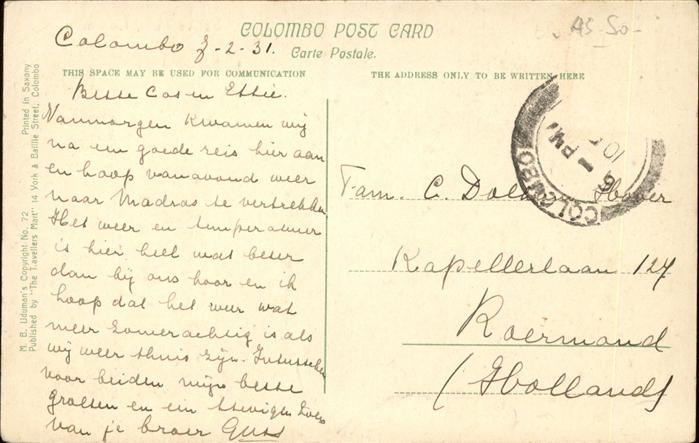 COLOMBO POST CARD
Carte Postale.
THIS SPACE MAY BE USED FOR COMMUNICATION
THE ADDRESS ONLY TO BE WRITTEN HERE
As-So-
Colombo 8-2-31.
Beste Cos en Ettie.
Vanmorgen kwamen wij
na een goede reis hier aan
en hoop vanavond weer
naar Madras te vertrekken
Het weer en temperatuur
is hier heel wat beter
dan bij ons hoor en ik
hoop dat het weer wat
meer zomerachtig is als
wij weer thuis zijn. Intusschen
voor beiden mijn beste
groeten en een stevigen zoen
van je broer Guus
Fam. C.
Kapellerlaan 124
Roermond
(Holland)
COLOMBO
PM
M. B. Uduman's Copyright No. 72 Printed in Saxony
Published by "The Travellers Mart" 14 York & Baillie Street, Colombo